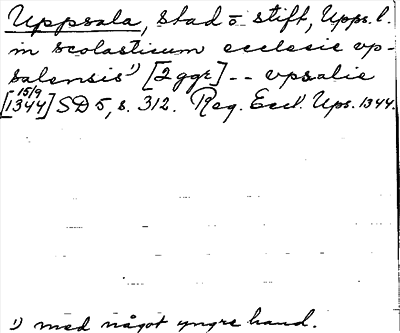 Uppsala, stad o. stift, Upps. l.
in scolasticum ecclesie vp-
salensis¹) [2 ggr] -- vpsalie
15/9
[1344] SD 5, s. 312. Reg. Eccl. Ups. 1344.
¹) med något yngre hand.